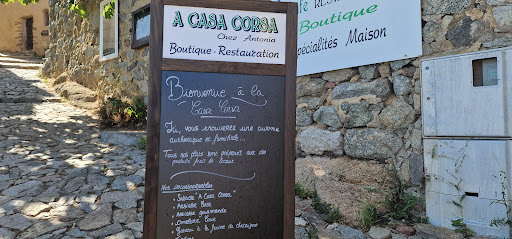 A CASA CORSA
Chez Antonia
Boutique - Restauration
Boutique
spécialités Maison
Bienvenue à la
Casa Corsa
Ici, vous trouverez une cuisine
authentique et familiale...
Tous nos plats sont préparés avec des
produits frais et locaux
Nos incontournables
- Salade "A Casa Corsa"
- Assiette Corse
- Assiette gourmande
- Omelette Corse
à la farine de chataigne